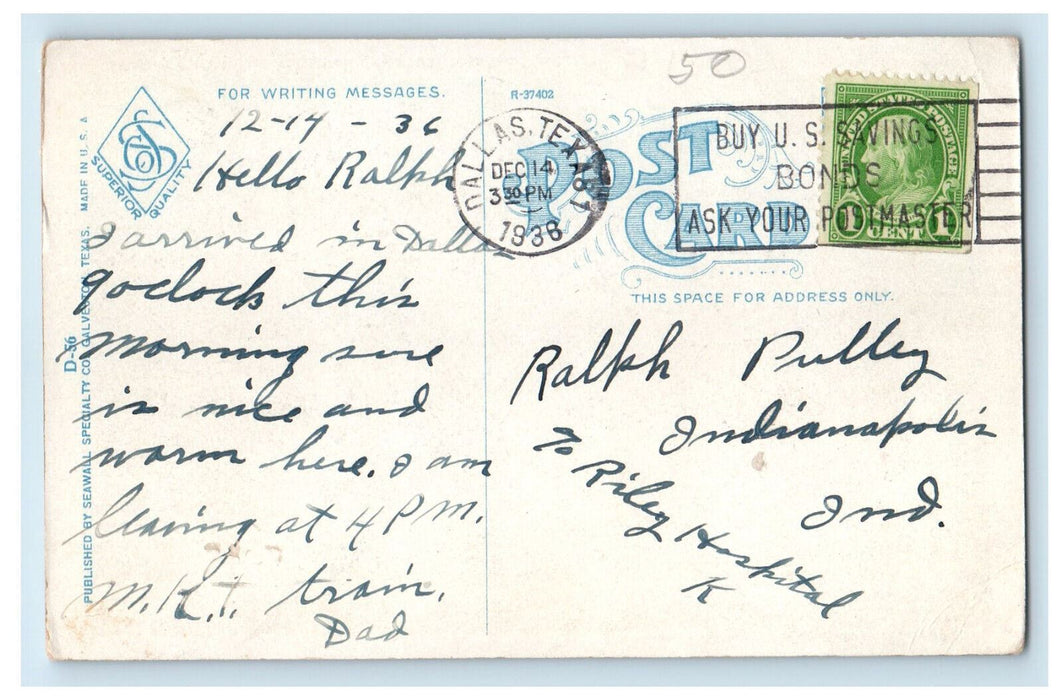 50
FOR WRITING MESSAGES.
R-37402
SUPERIOR QUALITY
12-14-36
Hello Ralph
I arrived in Dallas
9oclock this
morning sure
is nice and
warm here. I am
leaving at 4 P.M.
M.K.T. train.
Dad
PUBLISHED BY SEAWALL SPECIALTY CO., GALVESTON, TEXAS. MADE IN U. S. A
D-56
DALLAS, TEXAS
DEC 14
3 30 PM
1936
BUY U. S. SAVINGS
BONDS
ASK YOUR POSTMASTER
UNITED STATES POSTAGE
1 CENT 1
POST
CARD
THIS SPACE FOR ADDRESS ONLY.
Ralph Pulley
Indianapolis
Ind.
℅ Riley Hospital
K